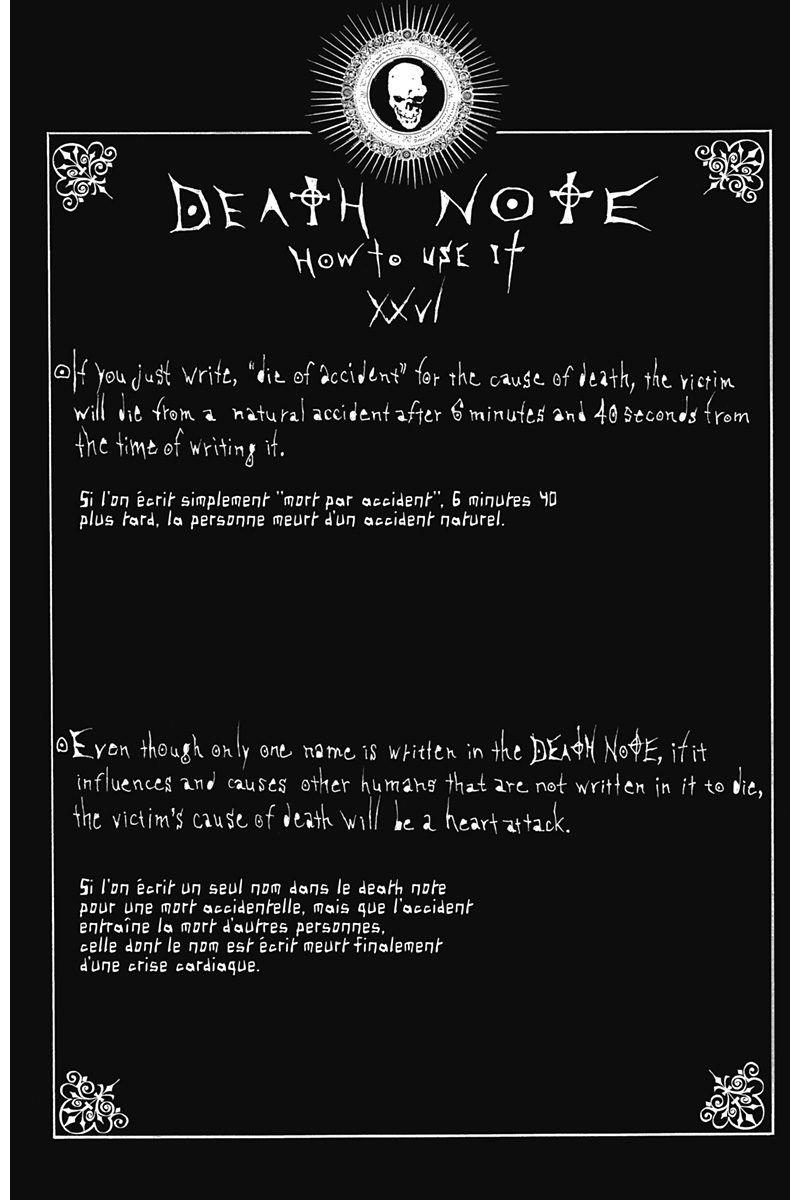 DEATH NOTE
HOW to USE It
XXVI
If you just write, "die of accident" for the cause of death, the victim
will die from a natural accident after 6 minutes and 40 seconds from
the time of writing it.
Si l'on écrit simplement "mort par accident", 6 minutes 40
plus tard, la personne meurt d'un accident naturel.
Even though only one name is written in the DEATH NOTE, if it
influences and causes other humans that are not written in it to die,
the victim's cause of death will be a heart attack.
Si l'on écrit un seul nom dans le death note
pour une mort accidentelle, mais que l'accident
entraîne la mort d'autres personnes,
celle dont le nom est écrit meurt finalement
d'une crise cardiaque.